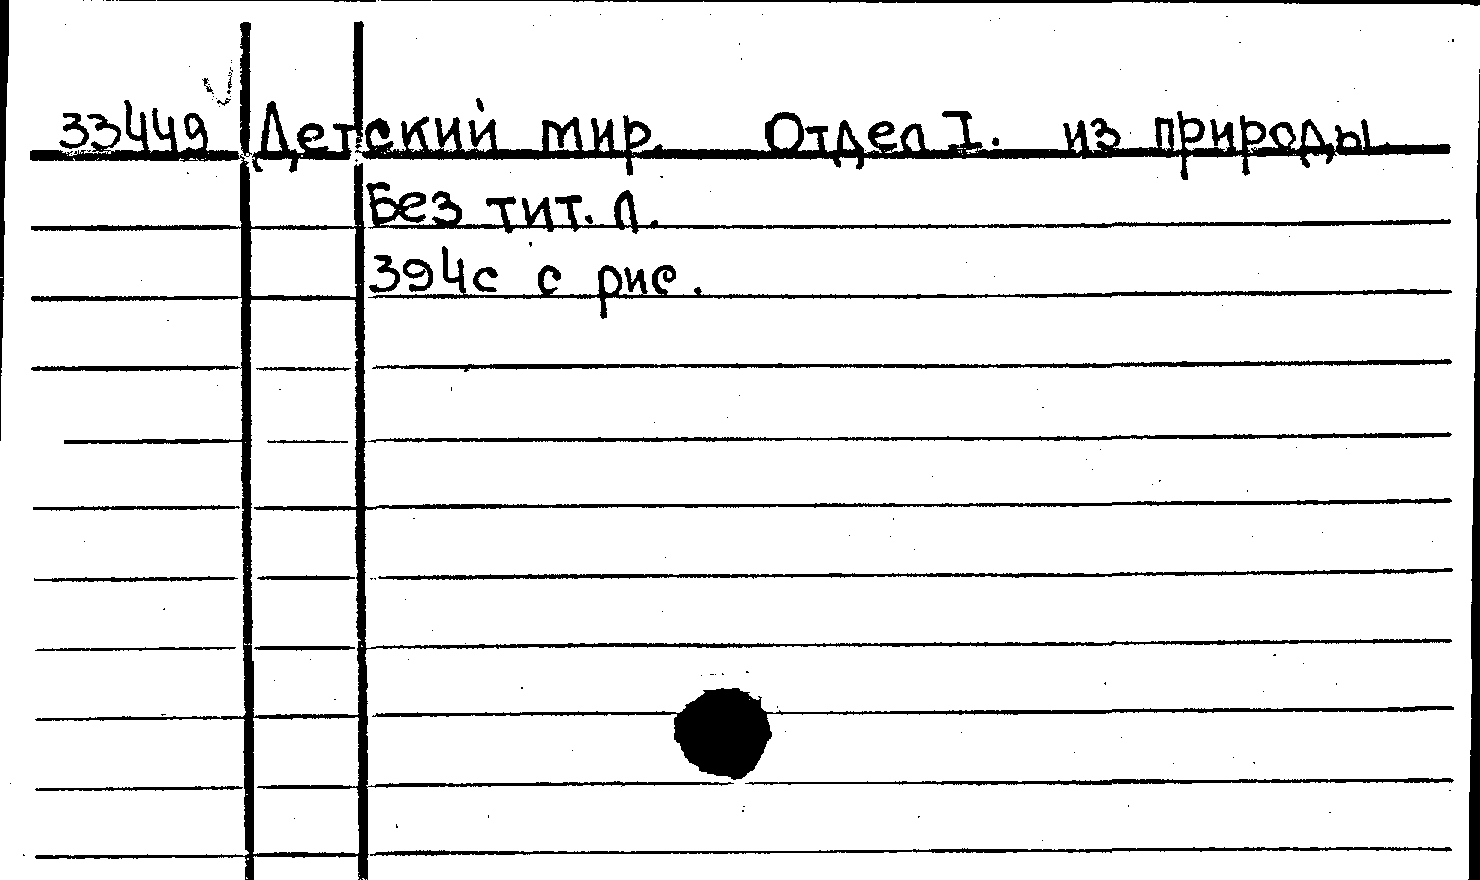 33449 Детский мир. Отдел I. из природы.
Без тит. л.
394с с рис.